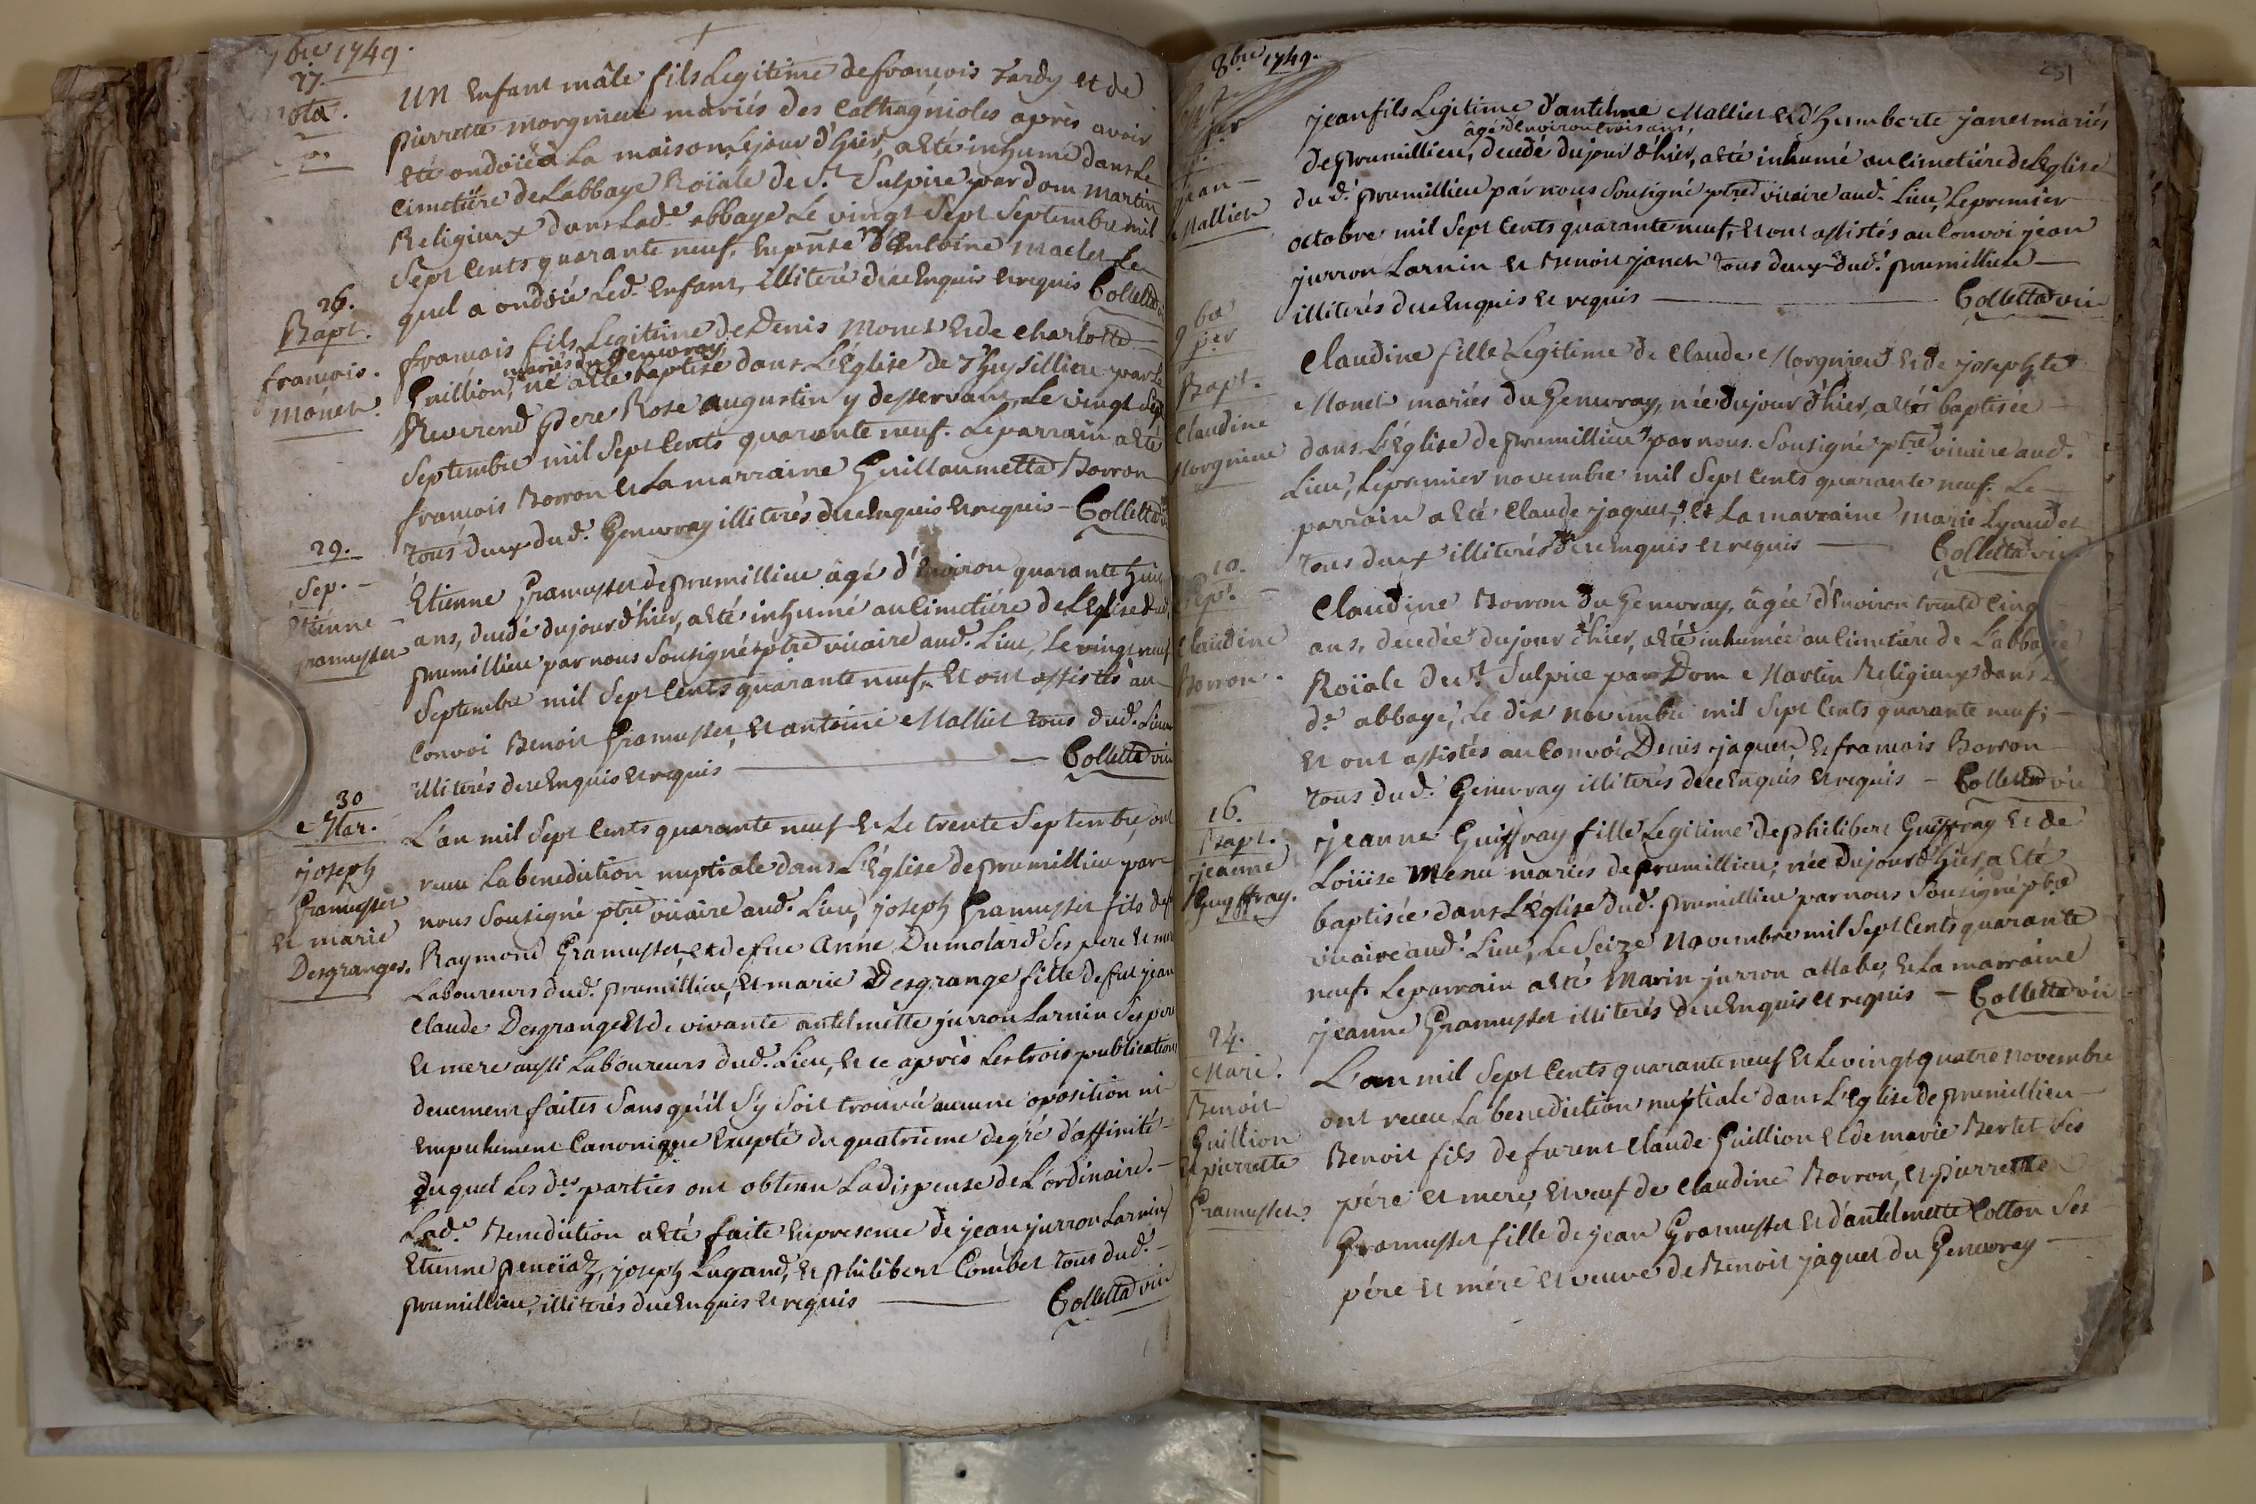 7bre 1749.
27.
Nota.
UN Enfant mâle fils Legitime de françois Tardy et de
pierrette morgnieu mariés des Cathagnioles après avoir
eté ondoié à La maison Le jour d'hier, a eté inhumé dans Le
cimetiére de L'abbaye Roïale de St. Sulpice par dom martin
Religieux dans Lad.e abbaye Le vingt Sept Septembre mil
Sept Cents quarante neuf. En pñse d'Entoine maclet Le
quel a ondoié Led. Enfant, illiteré de ce Enquis et requis Colletta vic
26.
Bapt.
françois
Monet.
françois fils Legitime de Denis Monet et de charlotte
mariés du Genevray
Guillion, né a eté baptisé dans L'Église de Thesillieu par Le
Reverend Pere Rose augustin y desservant, Le vingt Sept
Septembre mil Sept Cents quarante neuf. Le parrain a eté
françois Borron et La marraine Guillaumetta Borron
tous deux dud. Genevray illiterés de ce Enquis et requis - Colletta vic
29.
Sep. -
Etienne
Gramusset
Etienne Gramusset de prumillieu âgé d'Environ quarante huit
ans, decedé du jour d'hier, a eté inhumé au Cimetiére de L'Eglise dud.
prumillieu par nous Sousigné ptre vicaire aud. Lieu, Le vingt neuf
Septembre mil Sept Cents quarante neuf, Et ont assistés au
Convoi Benoit Gramusset, Et antoine Malliet tous dud. Lieu
illiterés de ce Enquis et requis — Colletta vic
30
Mar.
joseph
Gramusset
et marie
Desgranges.
L'an mil Sept Cents quarante neuf Et Le trente Septembre, ont
receu La benediction nuptiale dans L'Église de prumillieu par
nous Sousigné ptre vicaire aud. Lieu, joseph Gramusset fils de
Raymond Gramusset, et de feue Anne Dumolard Ses pere et mere
Laboureurs dud. prumillieu, Et marie Desgrange fille de feu jean
claude Desgrange Et de vivante antelmette jurron Larnin Ses pere
Et mere aussi Laboureurs dud. Lieu, Et ce après Les trois publications
deuement faites Sans qu'il S'y Soit trouvé aucune oposition ni
empechement Canonique Excepté du quatrieme degré d'affinité
duquel Les d.es parties ont obtenu La dispense de L'ordinaire.
Lad.e Benediction a eté faite En presence de jean jurron Larnin,
Etienne peneïaz, joseph Lugand, Et philibert Combet tous dud.
prumillieu, illiterés de ce Enquis et requis — Colletta vic
251
8bre 1749.
per
jean
Malliet
jean fils Legitime d'antelme Malliet Et d'humberte janet mariés
âgé d'Environ trois ans,
de prumillieu, decedé du jour d'hier, a eté inhumé au Cimetiére de L'Eglise
dud. prumillieu par nous Sousigné ptre vicaire aud. Lieu, Le premier
octobre mil Sept Cents quarante neuf, Et ont assistés au Convoi jean
jurron Larnin Et Benoit janet tous deux dud. prumillieu —
illiterés de ce Enquis et requis — Colletta vic
9bre
per
Bapt.
claudine
Morgnieu
Claudine fille Legitime de Claude Morgnieu Et de josephte
Monet mariés du Genevray, née du jour d'hier, a eté baptisée
dans L'Église de prumillieu par nous Sousigné ptre vicaire aud.
Lieu, Le premier novembre mil Sept Cents quarante neuf. Le
parrain a eté Claude jaquet, Et La marraine marie Lyaudet
tous deux illiterés de ce Enquis et requis — Colletta vic
10.
Sepr.
Claudine
Borron.
Claudine Borron du Genevray, âgée d'Environ trente Cinq
ans, decedée du jour d'hier, a eté inhumée au Cimetiére de L'abbaye
Roïale de St. Sulpice par Dom Martin Religieux dans L
d.e abbaye, Le dix novembre mil Sept Cents quarante neuf;
Et ont assistés au Convoi Denis jaquet Et francois Borron
tous dud. Genevray illiterés de ce Enquis et requis — Colletta vic
16.
Bapt.
jeanne
Guyffray.
jeanne Guiffray fille Legitime de philibert Guiffray Et de
Loüise Menu mariés de prumillieu, née du jour d'hier, a eté
baptisée dans L'Église dud. prumillieu par nous Sousigné ptre
vicaire aud. Lieu, Le Seize novembre mil Sept Cents quarante
neuf. Le parrain a eté Marin jurron allabe, Et La marraine
jeanne Gramusset illiterés de ce Enquis et requis — Colletta vic
24.
Mari.
Benoit
Guillion
Et pierrette
Gramusset.
L'an mil Sept Cents quarante neuf Et Le vingt quatre novembre
ont receu La benediction nuptiale dans L'Eglise de prumillieu
Benoit fils de furent Claude Guillion Et de marie Bertet Ses
pére et mere, Et veuf de Claudine Borron, Et pierrette
Gramusset fille de jean Gramusset Et d'antelmette Cotton Ses
pére Et mére Et veuve de Benoit jaquet du Genevray